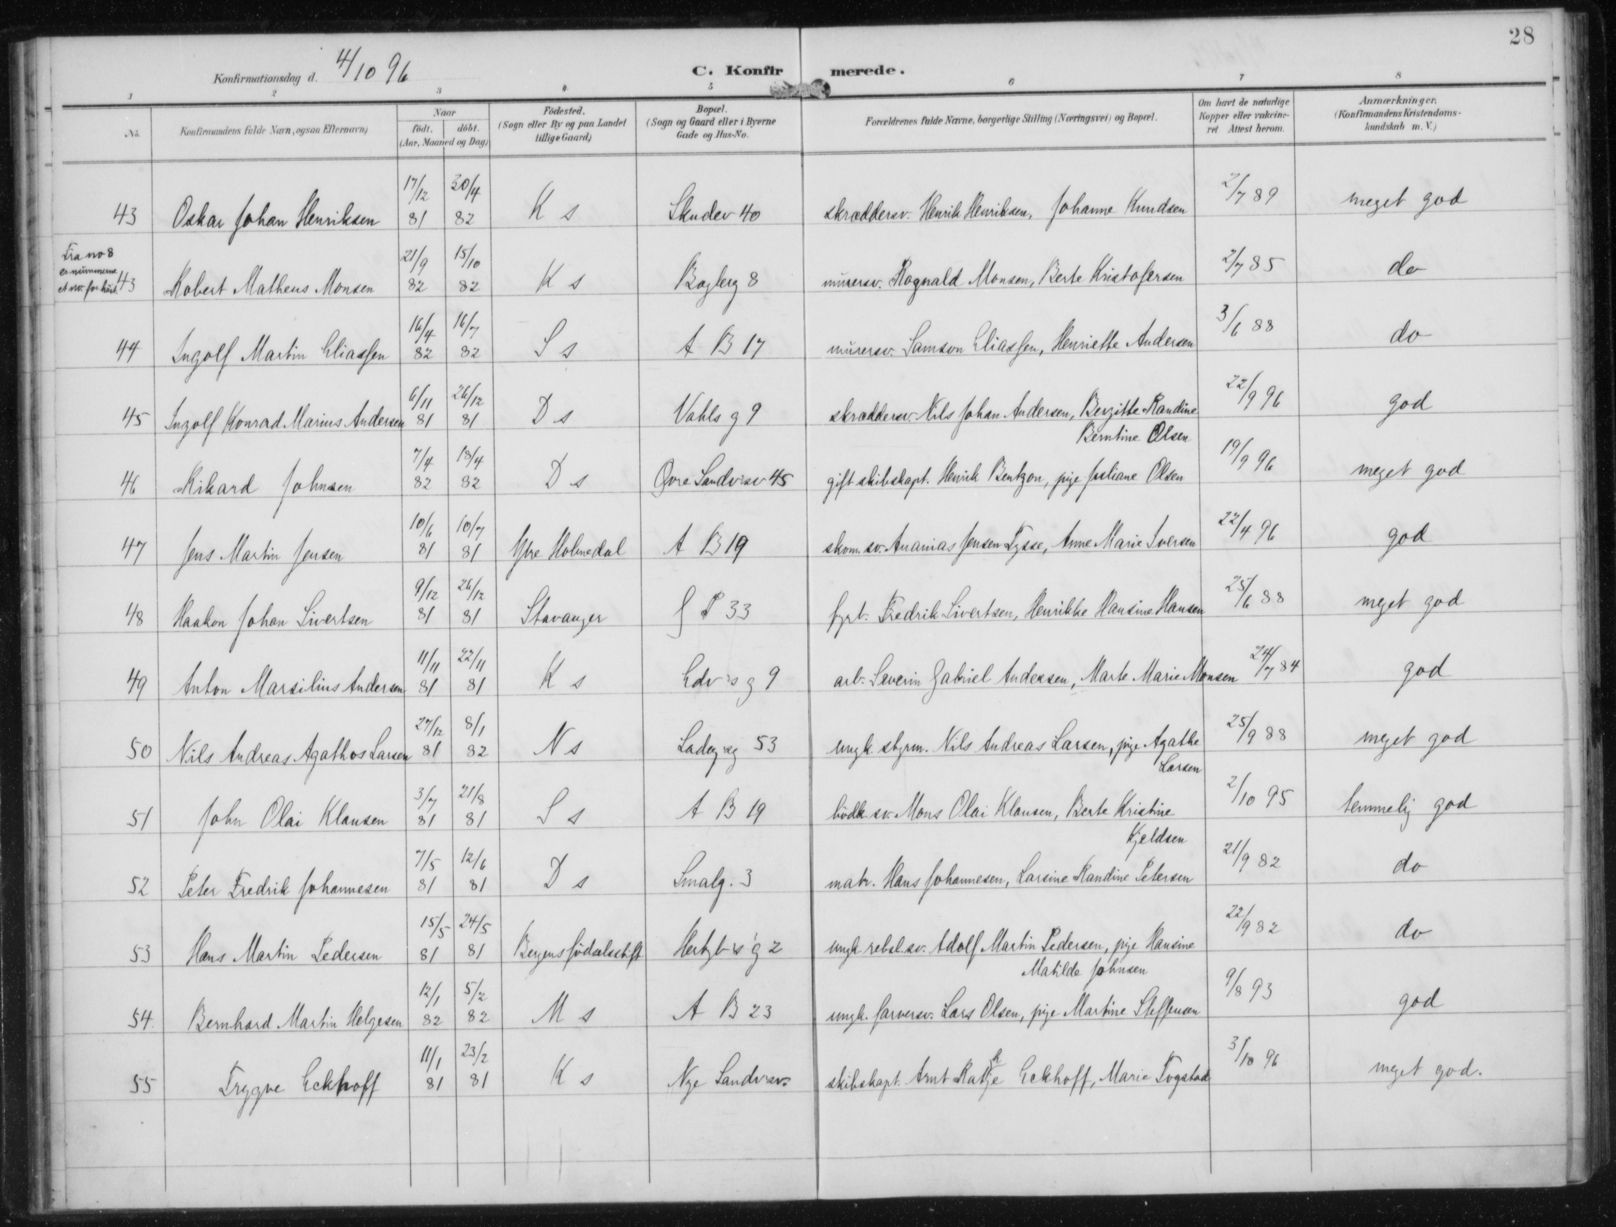 28
Konfirmationsdag d. 4/10 96
C. Konfirmerede.
1 2 3 4 5 6 7 8
No. Konfirmandens fulde Navn, ogsaa Efternavn) Naar født. døbt. (Aar, Maaned og Dag) Fødested. (Sogn eller By og paa Landet tillige Gaard) Bopæl. (Sogn og Gaard eller i Byerne Gade og Hus-No. Forældrenes fulde Navne, borgerlige Stilling (Næringsvei) og Bopæl. Om havt de naturlige Kopper eller vakcineret Attest herom. Anmærkninger. (Konfirmandens Kristendomskundskab m. V.)
43 Oskar Johan Henriksen 17/12 81 30/4 82 K s Skudev 40 skræddersv. Henrik Henriksen, Johanne Knudsen 2/7 89 meget god
Fra no 8 er numrene et no. for høit 43 Robert Matheus Monsen 21/9 82 15/10 82 K s Bagberg 8 murersv. Rognald Monsen, Berte Kristofersen 2/7 85 do
44 Ingolf Martin Eliassen 16/4 82 16/7 82 S s A B 17 murersv. Samson Eliassen, Henriette Andersen 3/6 88 do
45 Ingolf Konrad Marius Andersen 6/11 81 26/12 81 D s Vahls g 9 skræddersv. Nils Johan Andersen, Bergitte Randine Berntine Olsen 22/9 96 god
46 Rikard Johnsen 7/4 82 18/4 82 D s Øvre Sandvsv 45 gift skibskapt. Henrik Bentzon, pige Juliane Olsen 19/9 96 meget god
47 Jens Martin Jensen 10/6 81 10/7 81 Ytre Holmedal A B 19 skom. sv. Ananias Jensen Tysse, Anne Marie Iversen 22/4 96 god
48 Haakon Johan Sivertsen 9/12 81 26/12 81 Stavanger § P 33 fyrb. Fredrik Sivertsen, Henrikke Hansine Hansen 25/6 88 meget god
49 Anton Marsilius Andersen 11/11 81 22/11 81 K s Edv's g 9 arb. Severin Gabriel Andersen, Marte Marie Monsen 24/7 84 god
50 Nils Andreas Agathos Larsen 27/12 81 8/1 82 N s Ladeg vg 53 ungk. styrm. Nils Andreas Larsen, pige Agathe Larsen 25/9 88 meget god
51 John Olai Klausen 3/7 81 21/8 81 S s A B 19 bødk. sv. Mons Olai Klausen, Berte Kristine Kjeldsen 2/10 95 temmelig god
52 Peter Fredrik Johannesen 7/5 81 12/6 81 D s Smalg. 3 matr. Hans Johannesen, Larsine Randine Petersen 21/9 82 do
53 Hans Martin Pedersen 15/5 81 24/5 81 Bergens fødselsstift Hertzb's g 2 ungk. rebsl. sv. Adolf Martin Pedersen, pige Hansine Matilde Johnsen 22/9 82 do
54 Bernhard Martin Helgesen 12/1 82 5/2 82 M s A B 23 ungk. farversv. Lars Olsen, pige Martine Steffensen 9/8 93 god
55 Trygve Eckhoff 11/1 81 23/2 81 K s Nye Sandvsv. skibskapt. Arnt Ratje Eckhoff, Marie Fogstad 3/10 96 meget god.